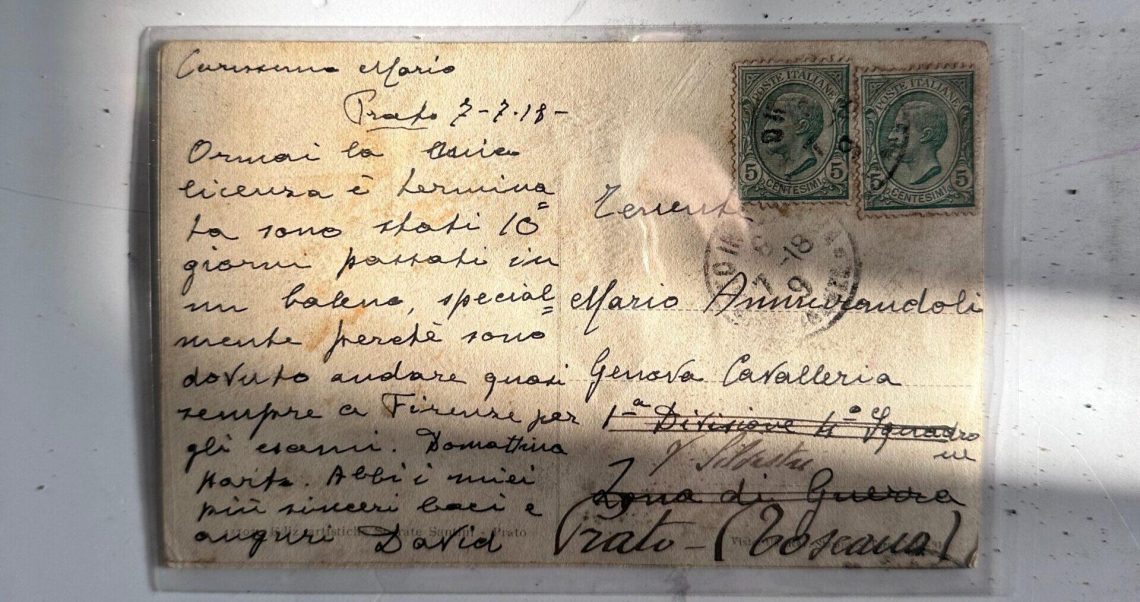 Carissimo Mario
Prato 7-7-18-
Ormai la mia
licenza è termina
ta sono stati 10
giorni passati in
un baleno, special=
mente perchè sono
dovuto andare quasi
sempre a Firenze per
gli esami. Domattina
parto. Abbi i miei
più sinceri baci e
auguri David
POSTE ITALIANE
5 5
CENTESIMI
POSTE ITALIANE
5 5
CENTESIMI
Tenente
Mario
Genova Cavalleria
1ª Divisione 4º Squadro
ne
Zona di Guerra
Prato - (Toscana)
Santini - Prato